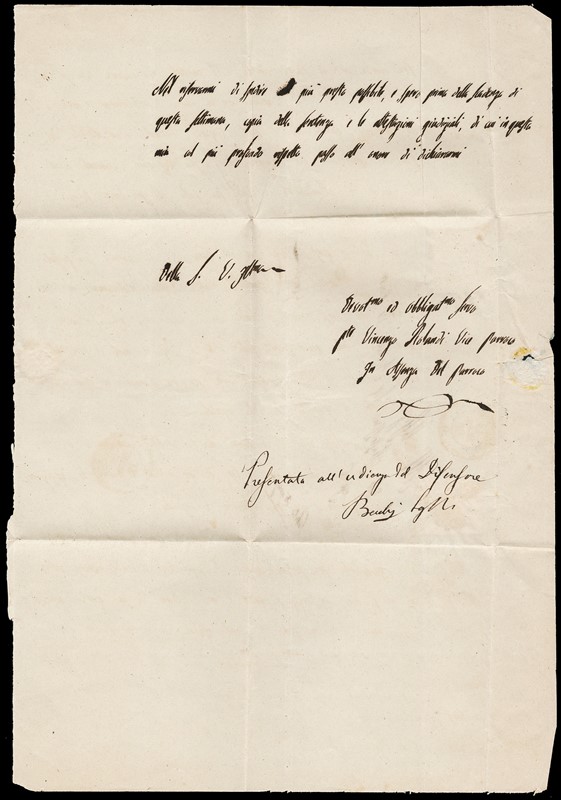 Nel riservarmi di spedir più presto possibile, e spero prima della scadenza di
questa settimana, copia della sentenza e le attestazioni giudiziali, di cui in questa
mia col più profondo rispetto passo all' onore di dichiararmi
Della S. V. Illma
Devotmo ed obbligatmo Servo
Vincenzo Rolandi Vice parroco
In Assenza del parroco
Presentata all' udienza del Difensore